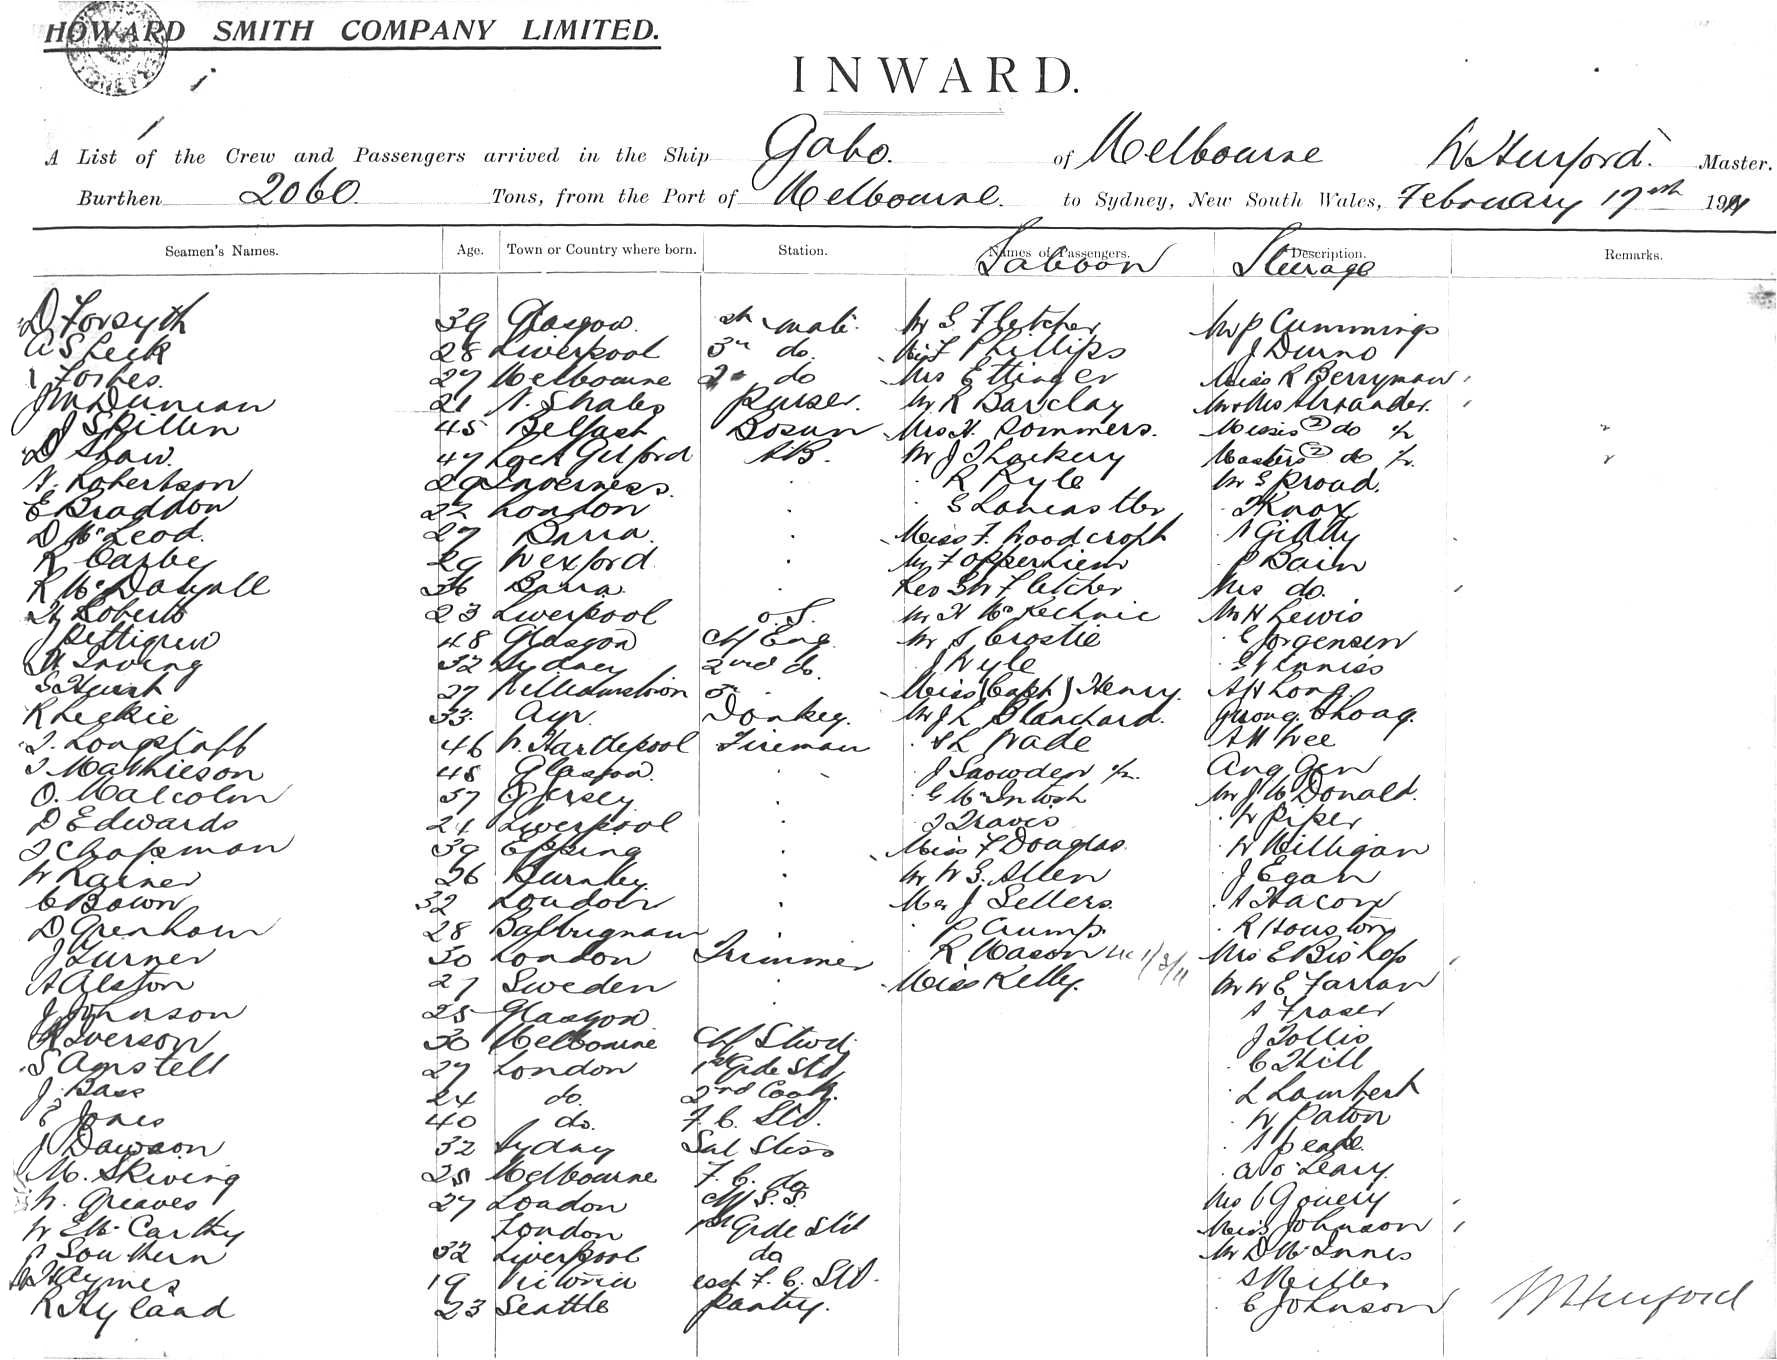 HOWARD SMITH COMPANY LIMITED.
INWARD.
A List of the Crew and Passengers arrived in the Ship Gabo. of Melbourne W Hurford. Master.
Burthen 2060. Tons, from the Port of Melbourne. to Sydney, New South Wales, February 17th 1911
Seamen's Names. Age. Town or Country where born. Station. Names of Passengers. Description. Remarks.
Saloon Steerage
D Forsyth 39 Glasgow. mate. Mr S Fletcher Mr P Cummings
A S Leck 28 Liverpool 3rd do. F Phillips J Durno
Forbes. 27 Melbourne do Mrs Ettinger Miss R Berryman
J McDuncan 21 N. Shales Purser. Mr R Barclay Mr & Mrs Alexander.
J Skillin 45 Belfast Bosun Mrs H. Sommers. Misses (2) do
D Shaw. 47 Loch Gilford AB. Mr J Thackery Masters (2) do
N. Robertson 29 Inverness. R Ryle Mr S Proud.
E Braddon 22 London S Lancaster Knox
D McLeod. 27 Barra. Miss F. Woodcroft A Giddy
R Carbey 29 Wexford Mr F Oppenheim P Bain
R McDougall 36 Barra Rev S W Fletcher Mrs do.
H Roberts 23 Liverpool O.S. Mr H McKechnie Mr H Lewis
J Pettigrew 48 Glasgow Chf Eng. Mr S Crostie E Jorgensen
W Irving 32 Sydney 2nd do. J Wyle Ennis
S Hurst 27 Williamstown 3rd Miss (Capt) Henry. A W Long.
R Leckie 33 Ayr. Donkey. Mr J L Blanchard. Quong Choag.
T. Longstaff 46 W. Hartlepool Fireman L Wade A H Wee
T Mathieson 48 Glasgow. J Snowden Ang Gen
O. Malcolm 37 Jersey G McIntosh Mr J McDonald.
D Edwards 21 Liverpool T Travis W Piper
T Chapman 39 Epping Miss F Douglas. W Milligan
W Rainer 26 Burnley. Mr W G. Allen J Egan
C Bown 32 London Mr J Sellers. A Hacon
D Grenham 28 Balbrignam P Crump. R Houston
J Turner 30 London Trimmer R Mason 1/3/11 Mrs E Bishop
A Alston 27 Sweden Miss Kelly. Mr W E Farran
J Johnson 25 Glasgow A Fraser
R Iverson 30 Melbourne Chf Stwd. J Follis
S Amstell 27 London 1st Grde Std. C Hill
J. Bass 24 do. 2nd Cook. L Lambert
E Jones 40 do. F. C. Std. W Paton
J Dawson 32 Sydney Sal Stess A Peake.
M. Skiving 25 Melbourne F. C. do A O'Leary.
W. Greaves 27 London Chf S. S. Mrs C Govery
W E McCarthy London 1st Grde Std Miss Johnson
P Southern 32 Liverpool do Mr D McInnes
Haymes 19 Victoria asst F. C. Std. S Miller
R Hyland 23 Seattle Pantry. C Johnson W Hurford